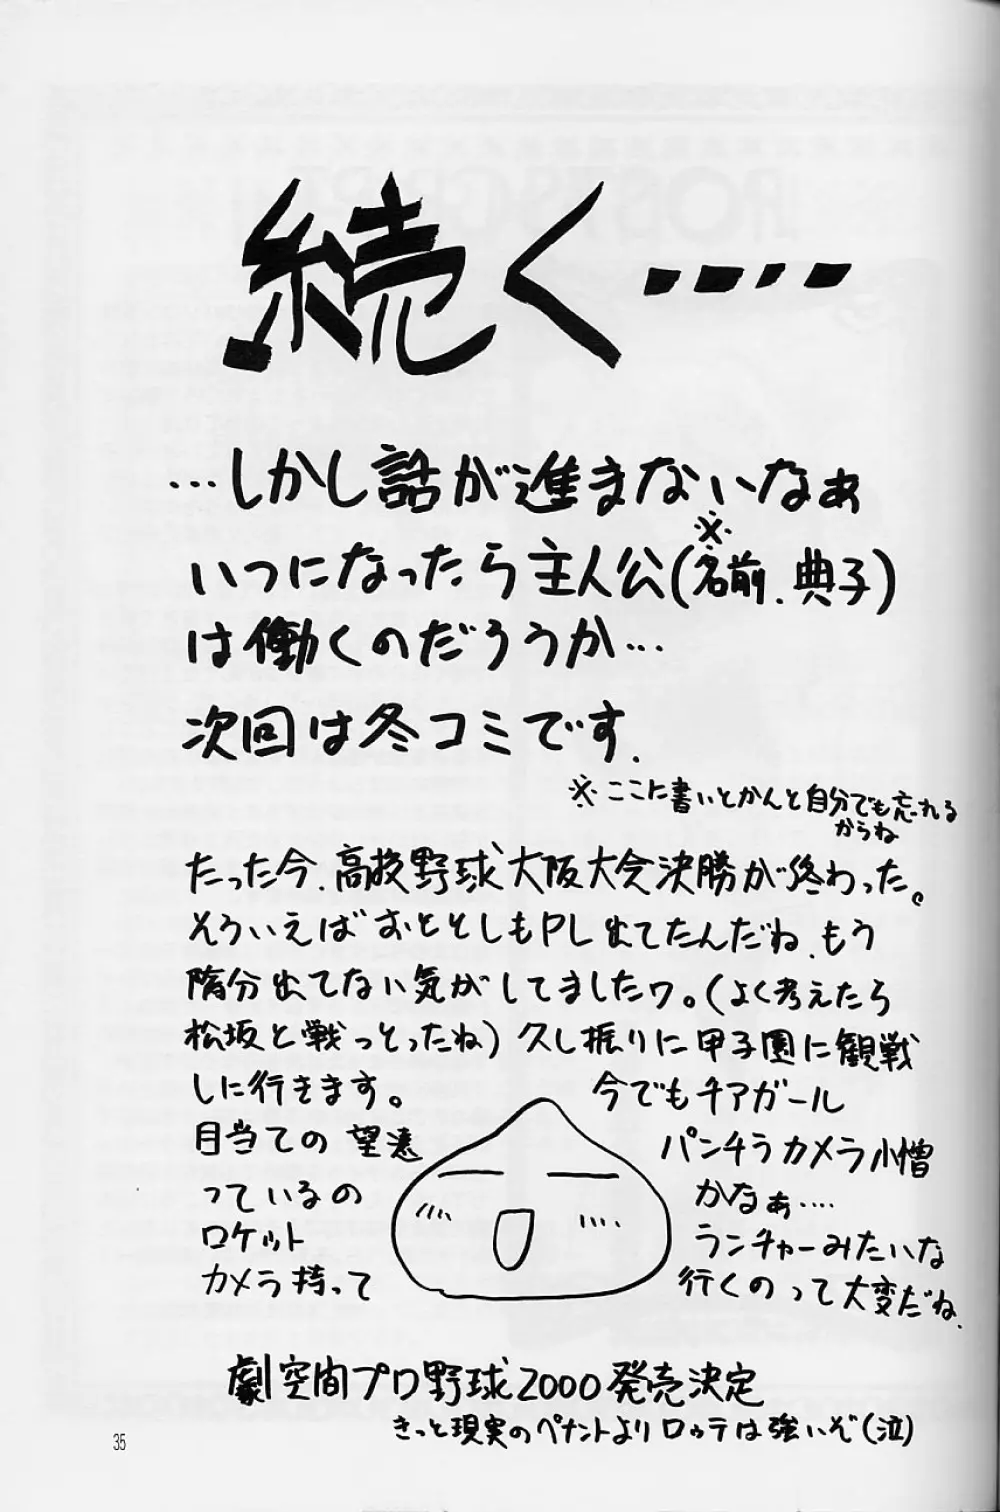 続く‥‥
…しかし話が進まないなぁ
いつになったら主人公(※名前、典子)
は働くのだろうか…
次回は冬コミです.
※ここに書いとかんと自分でも忘れる
からね
たった今、高校野球大阪大会決勝が終わった。
そういえばおととしもPL出てたんだね、もう
随分出てない気がしてましたワ。(よく考えたら
松坂と戦っとったね)久し振りに甲子園に観戦
しに行きます。 今でもチアガール
目当ての パンチラカメラ小憎
っているの かなぁ‥‥
望遠ロケット ランチャーみたいな
カメラ持って 行くのって大変だね.
劇空間プロ野球2000発売決定
きっと現実のペナントよりロッテは強いぞ(泣)
35